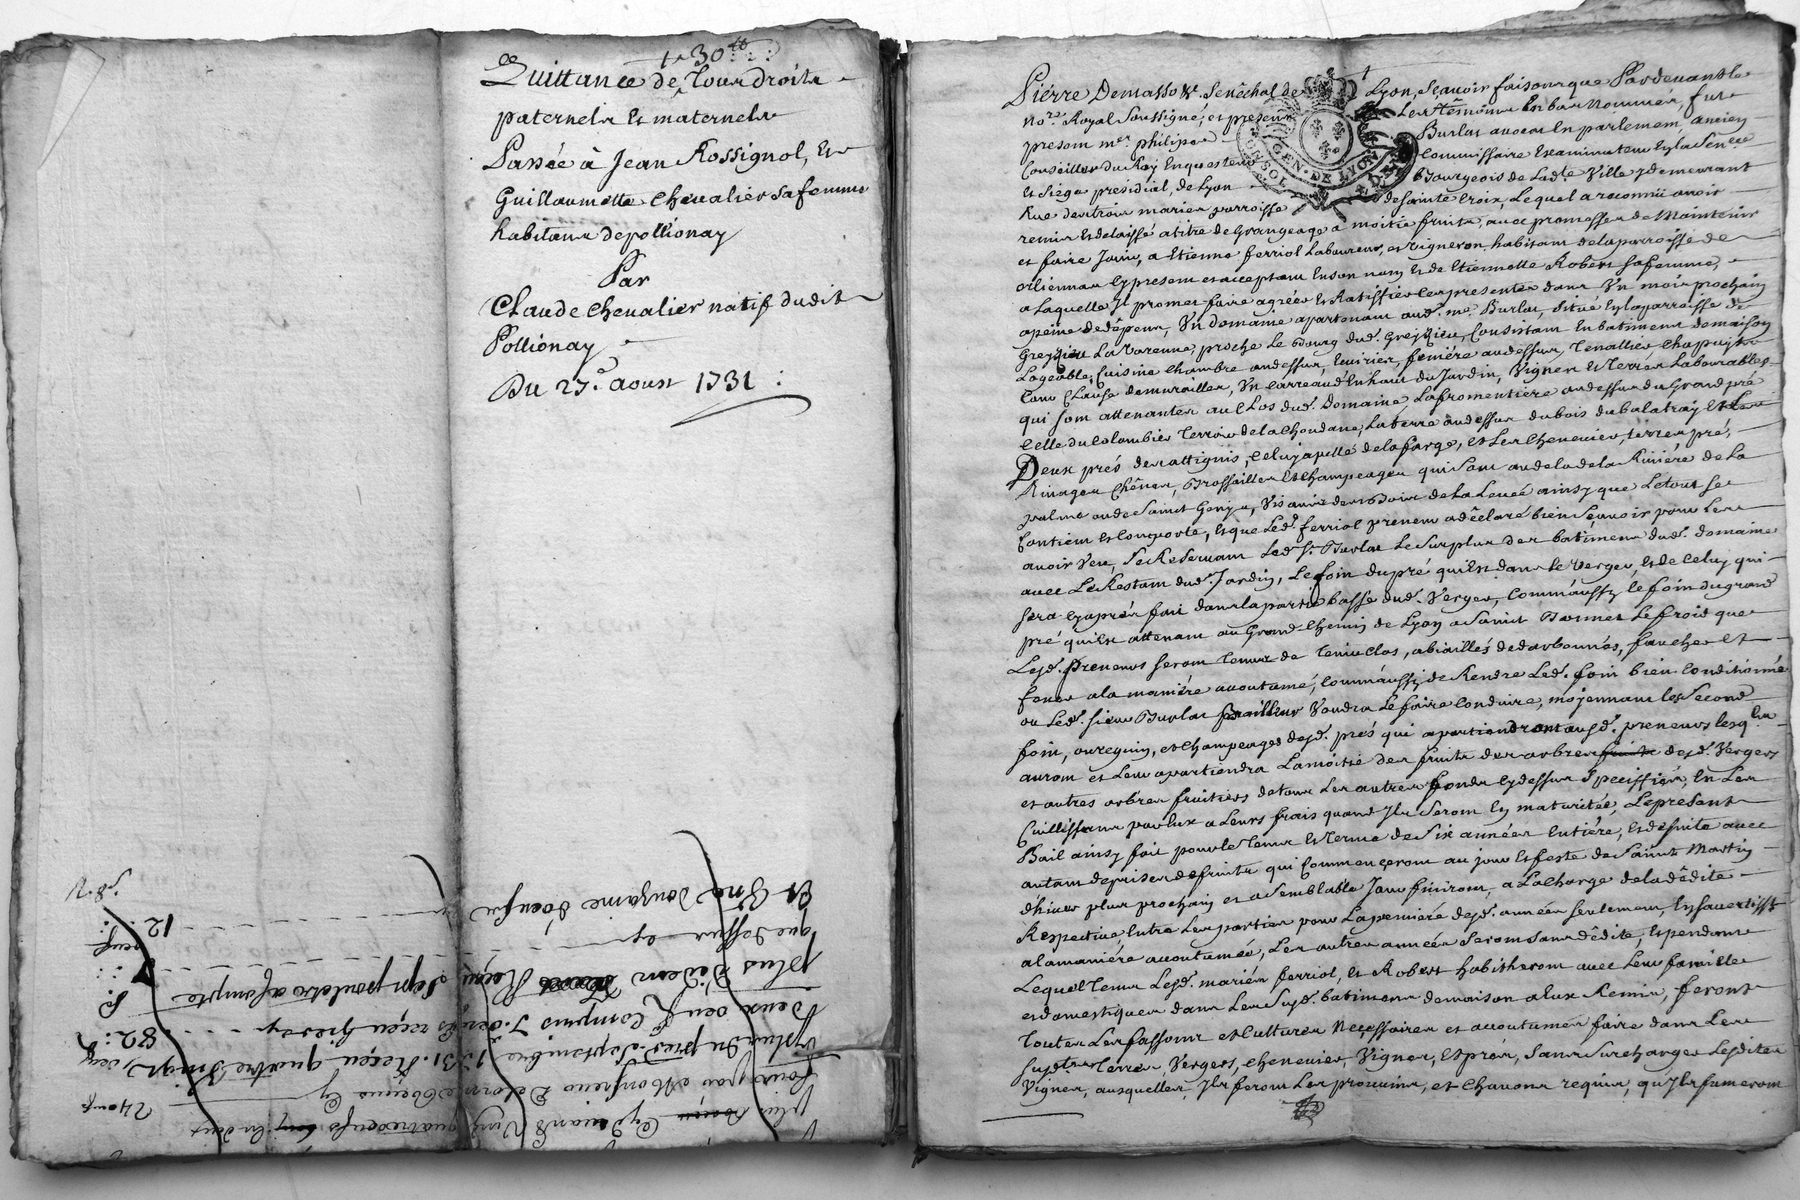 1 30
Quittance de Tous droits
paternels Et maternels
Passée à Jean Rossignol, Et
Guillaumette Chevalier sa femme
habitans de pollionay
Par
Claude Chevalier natif dudit
Pollionay
Du 27.e aoust 1731 :
Et Une douzaine d'oeufs
12
que dessus
plus d'idem Reçu Sept poulets a compte
deux oeufs Compris 7. de reçu hier
82
plus du pred. Septembre 1731. Reçu quatre vingt
fours par Monsieur Delorme
plus Cy devant Vingt quatre oeufs
24 oeufs
Pierre Demasso Sénéchal de Lyon, Sçavoir faisons que Pardevant le
No.re Royal Soussigné, et presens Les Témoins En bas Nommés, fut
present m.e philipe Burlat avocat En parlement ancien
Conseiller du Roy Enquesteur Commissaire Examinateur En la Senée
Et Siége presidial, de Lyon Bourgeois de Lad.e Ville y demeurant
Rue des trois maries parroisse de Sainte Croix, Lequel a reconnu avoir
remis Et delaissé a titre de Grangeage a moitié fruits, avec promesse de Maintenir
et faire Jouir, a Etienne ferriol Laboureur, et Vigneron habitant de la parroisse de
orliennas Cy present et acceptant En son nom Et de Etiennette Robert sa femme,
a Laquelle Il promet faire agréer Et Ratiffier Ces presentes dans Un mois prochain
apeine de dépens, Un domaine apartenant aud. m.e Burlat, situé En la parroisse de
Greyzieu La Varenne, proche Le Bourg dud. Greyzieu, Consistant En batimens de maison
Logeable, Cuisine Chambre au dessus, Ecuries, feniére au dessus, Tenallier Chapuys
Tout Clause de murailles, Un Carreau d'En haut du Jardin, Vignes Et Terres Labourables
qui sont attenantes au Clos dud. Domaine, La fromentiere au dessus du Grand pré
Celle du Colombier Terroir de la Choudane, La terre au dessus du bois du balatray Et Les
Deux prés des attignis, Celuy apellé de la farge, et Les Chenevier, terres, pré,
Rivages Chénes, Brossailles Et Champeages qui Sont au dela de la Riviére de La
ou de Saint Genys, Vis avis des Bois de La Levée ainsy que Le tout Se
Contient Et Comporte, Et que Led. ferriol preneur a déclaré bien Sçavoir pour Les
avoir Veu, Se Reservant Led. S.r Burlat Le Surplus des batimens dud. domaine
avec Le Restant dud. Jardin, Le foin du pré qui Est dans le Verger, Et de Celuy qui
Sera Cy aprés fait dans la partie basse dud. Verger, Comme aussy le foin du grand
pré qui Est attenant au Grand Chemin de Lyon a Saint Bonnet Le froid que
Lesd. Preneurs seront Tenus de Tenir Clos, abiaillés de darbounés, faucher Et
fener a la maniére accoutumé, Comme aussy de Rendre Led. foin bien Conditionné
ou Led. sieur Burlat Voudra Le faire Conduire, moyennant le Second
foin, ou reguin, et Champeages desd. prés qui apartiendront ausd. preneurs lesq.ls
auront et Leur apartiendra La moitié des fruits des arbres desd. Vergers
et autres arbres fruitiers de tous Les autres fonds Cy dessus Speciffiés, En Les
Cuillissant par Eux a Leurs frais quand Ils Seront En maturitée, Le present
Bail ainsy fait pour le Tems Et Terme de Six années Entiére, Et de suite avec
autant de prises de fruits qui Commenceront au jour Et feste de Saint Martin
d'hiver plus prochain et a Semblable Jour finiront, a La Charge de la dédite
Respective Entre Les parties pour La premiére desd. années Seulement, En s'avertissant
a la maniére accoutumée, Les autres années Seront sans dédite, Et pendant
Lequel Tems Lesd. mariés ferriol, Et Robert habitheront avec Leur famille
et domestiques dans Les Susd. batimens de maison a Eux Remis, feront
Toutes Les fassons et Cultures Necessaires et accoutumés faire dans Les
Susd. Terres, Vergers, Chenevier, Vignes, Et prés, Sans Surcharger Lesdites
Vignes, ausquelles Ils feront Les provains, et Chavons requis, qu'Ils fumeront
GEN. DE LYON